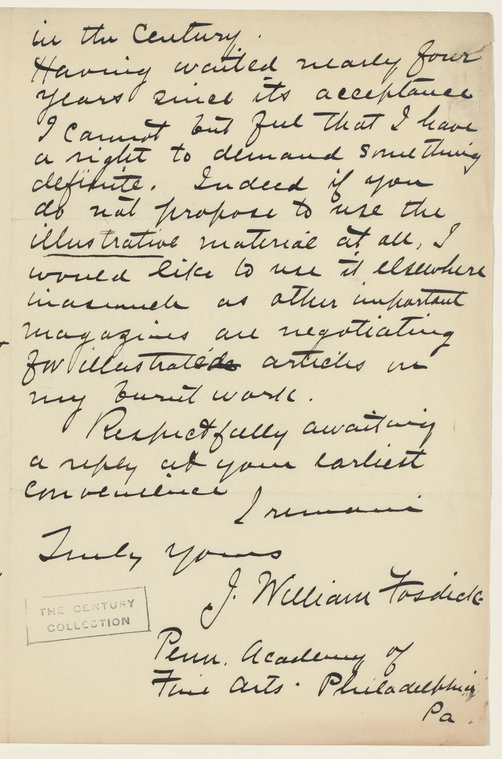 in the Century.
Having waited nearly four
years since its acceptance
I cannot but feel that I have
a right to demand something
definite. Indeed if you
do not propose to use the
illustrative material at all, I
would like to use it elsewhere
inasmuch as other important
magazines are negotiating
for illustrated articles on
my burnt work.
Respectfully awaiting
a reply at your earliest
convenience
I remain
Truly yours
J. William Fosdick
THE CENTURY
COLLECTION
Penn. Academy of
Fine Arts. Philadelphia
Pa.